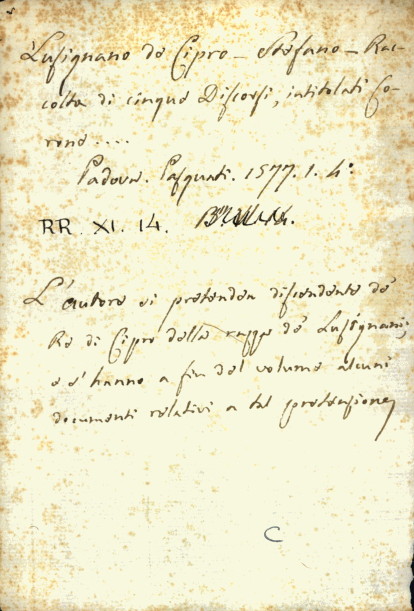 Lusignano de Cipro - Stefano - Rac-
colta di cinque Discorsi, intitolati Co-
rone....
Padova. Pasquati. 1577. 1. 4.º
RR. XI. 14.
L'autore si pretendea discendente de'
Re di Cipro della razza de' Lusignani,
e s'hanno a fin del volume alcuni
documenti relativi a tal pretensione
C